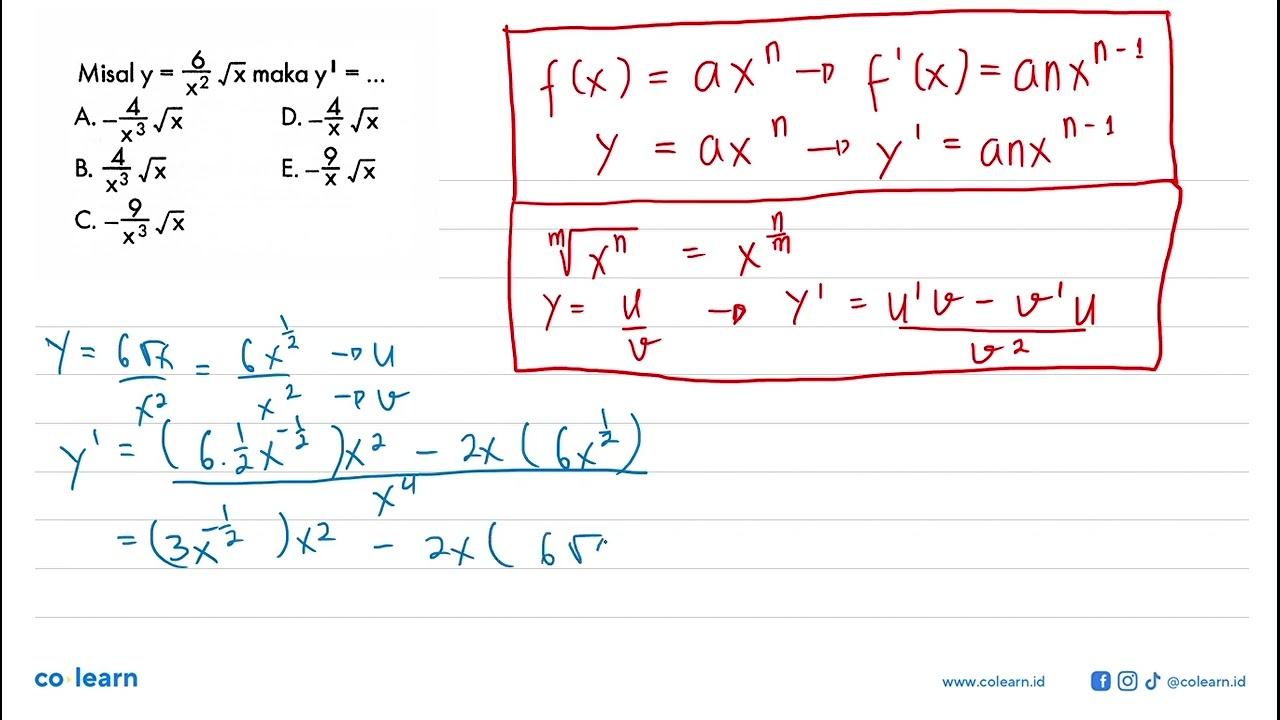 Misal y = 6/x² √x maka y' = ...
A. −4/x³ √x D. −4/x √x
B. 4/x³ √x E. −9/x √x
C. −9/x³ √x
f(x) = ax^n → f'(x) = anx^(n-1)
y = ax^n → y' = anx^(n-1)
m√x^n = x^(n/m)
y = u/v → y' = (u'v − v'u)/v²
y = 6√x/x² = 6x^(1/2)/x² → u → v
y' = ((6·1/2x^(-1/2))x² − 2x(6x^(1/2)))/x⁴
= (3x^(-1/2))x² − 2x(6√
co learn
www.colearn.id @colearn.id